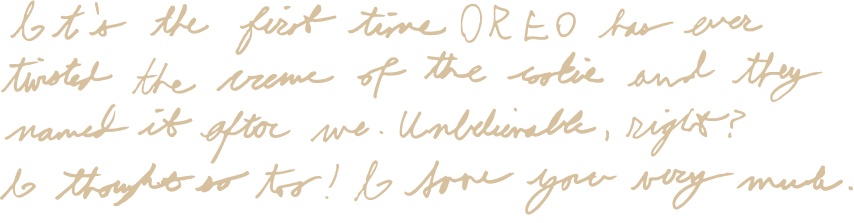 It's the first time OREO has ever
twisted the creme of the cookie and they
named it after me. Unbelievable, right?
I thought so too! I love you very much.